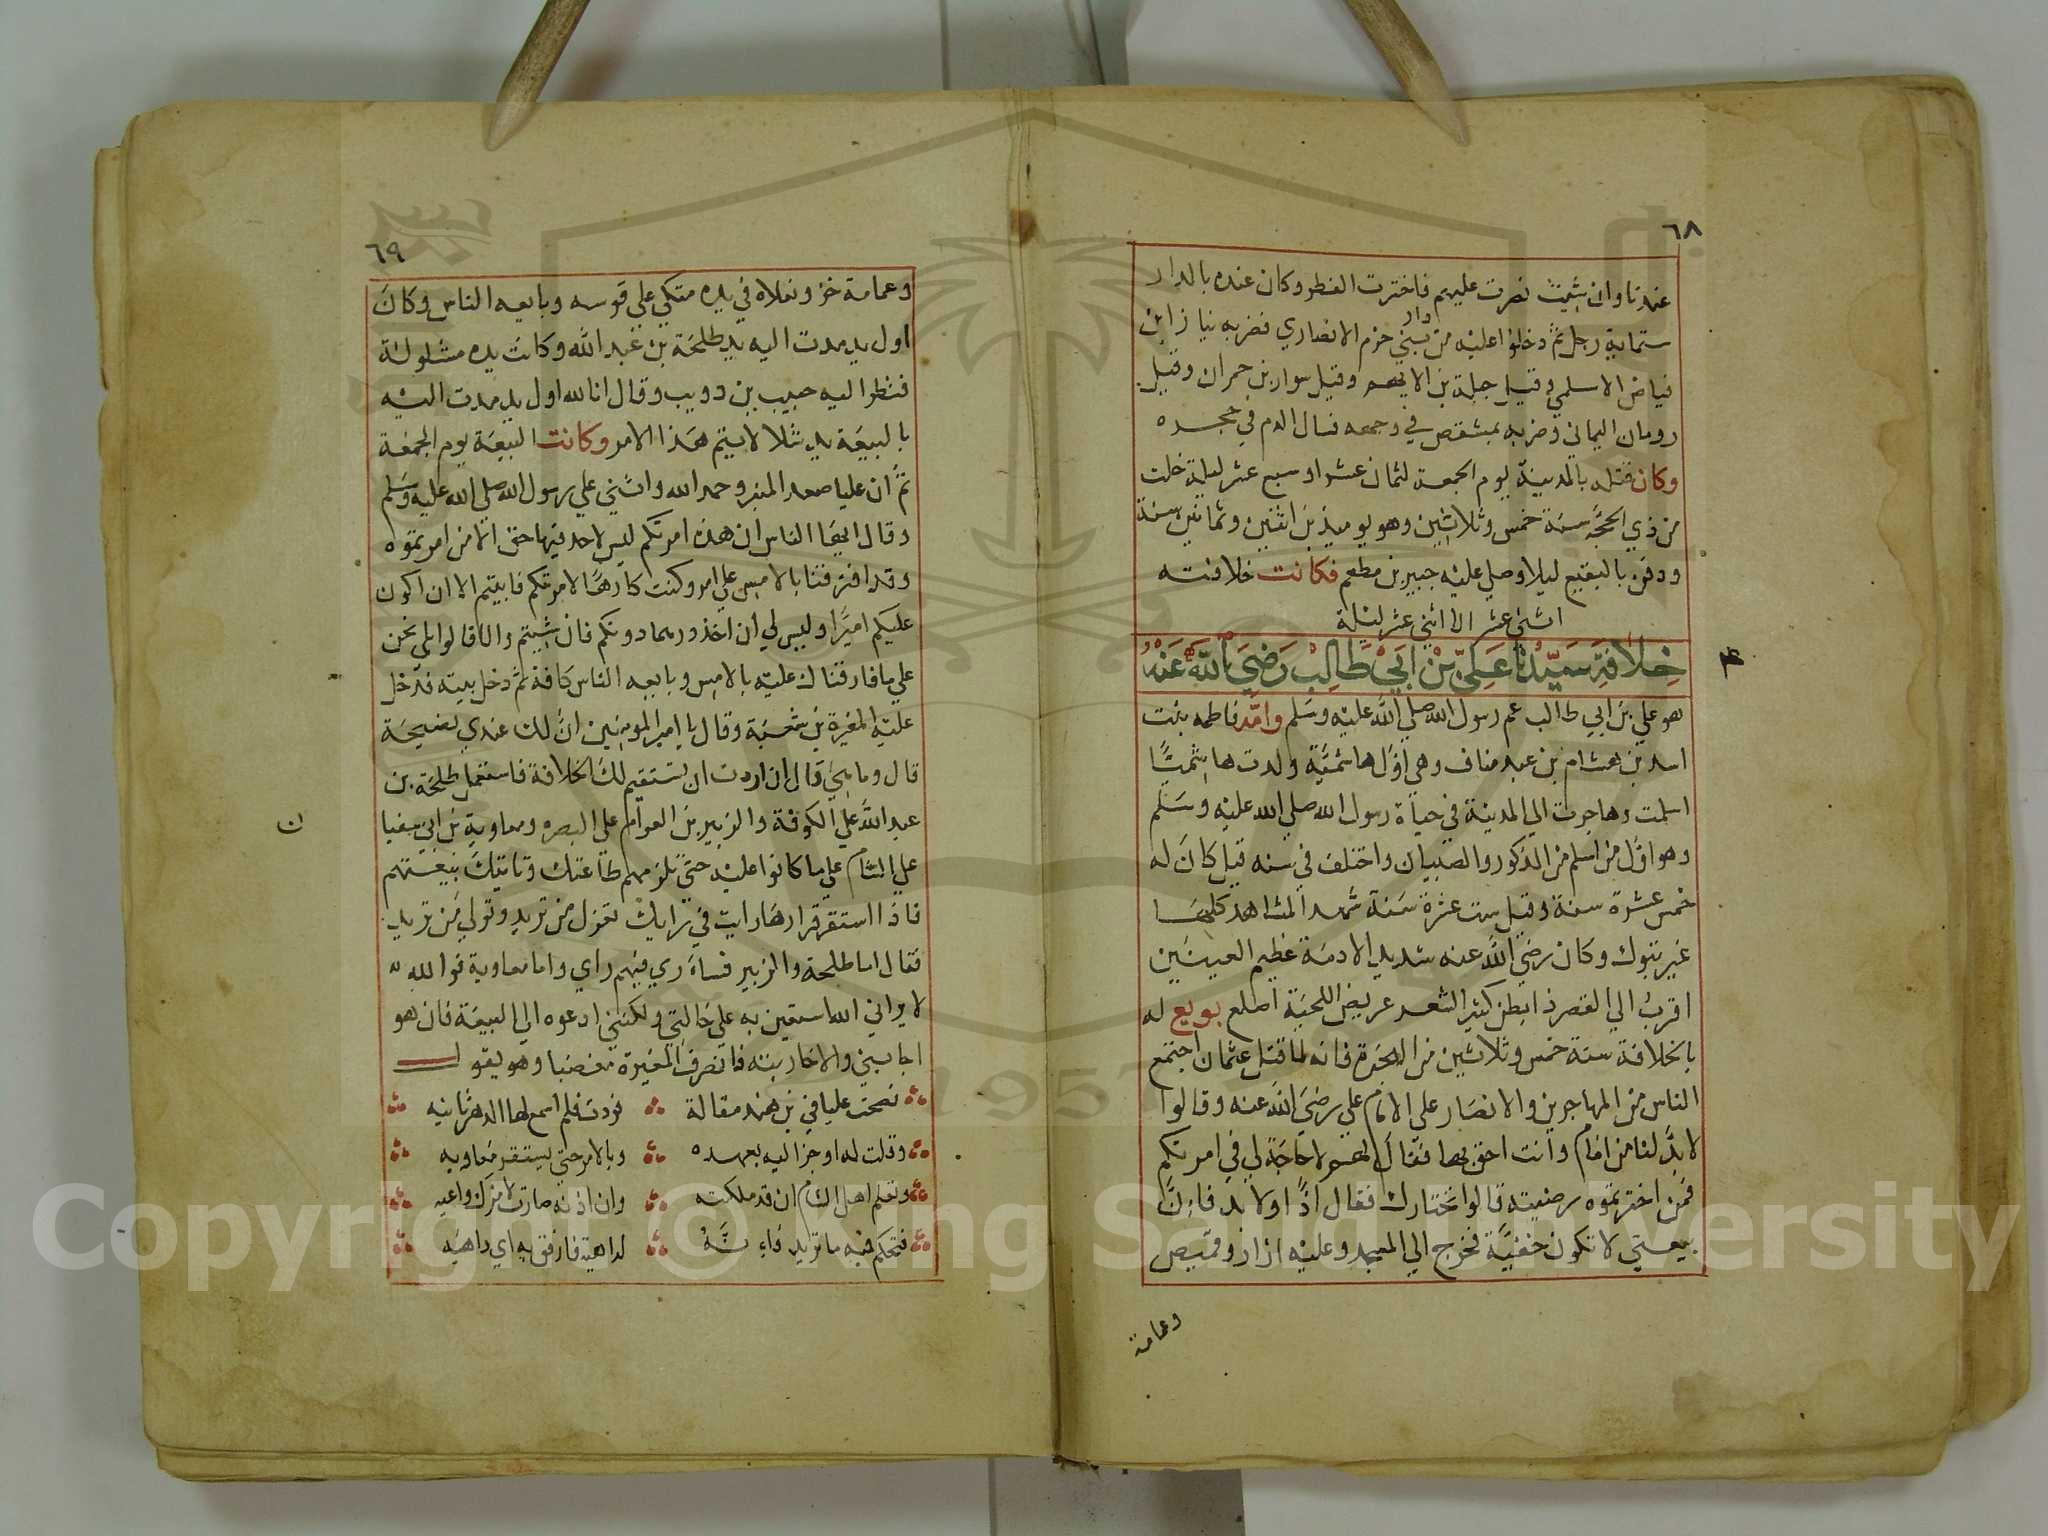 ٦٨
عندنا وان شيت نصرت عليهم فاخترت الفطر وكان عنده بالدار
ستماية رجل ثم دخلوا عليه من دار بني حزم الانصاري فضربه نيار ابن
فياض الاسلمي وقيل جبلة بن الايهم وقيل سوار بن حمران وقيل
رومان اليماني وضربه بمشقص في وجهه فسال الدم في حجره
وكان قتله بالمدينة يوم الجمعة لثمان عشر او سبع عشر ليلة خلت
من ذي الحجة سنة خمس وثلاثين وهو يوميذ بن اثنين وثمانين سنة
ودفن بالبقيع ليلا وصلي عليه جبير بن مطعم فكانت خلافته
اثني عشر الا اثني عشر ليلة
خلافة سيدنا علي بن ابي طالب رضي الله عنه
هو علي بن ابي طالب عم رسول الله صلي الله عليه وسلم وامه فاطمه بنت
اسد بن هشام بن عبد مناف وهي اول هاشمية ولدت هاشميا
اسلمت وهاجرت الي المدينة في حياة رسول الله صلي الله عليه وسلم
وهو اول من اسلم من الذكور والصبيان واختلف في سنه قيل كان له
خمس عشرة سنة وقيل ست عشرة سنة شهد المشاهد كلها
غير تبوك وكان رضي الله عنه شديد الادمة عظيم العينين
اقرب الي القصر ذا بطن كثير الشعر عريض اللحية اصلع بويع له
بالخلافة سنة خمس وثلاثين من الهجرة فانه لما قتل عثمان اجتمع
الناس من المهاجرين والانصار علي الامام علي رضي الله عنه وقالوا
لا بد لنا من امام وانت احق بها فقال لهم لا حاجة لي في امرتكم
فمن اخترتموه رضيته قالوا نختارك فقال اذا ولا بد فان
بيعتي لا تكون خفية فخرج الي المسجد وعليه ازار وقميص
وعمامة
٦٩
وعمامة خز ونعلاه في يده متكي علي قوسه وبايعه الناس وكان
اول يد مدت اليه يد طلحة بن عبد الله وكانت يده مشلولة
فنظر اليه حبيب بن دويب وقال انا لله اول يد مدت اليه
بالبيعة يد شلا لا يتم هذا الامر وكانت البيعة يوم الجمعة
ثم ان عليا صعد المنبر وحمد الله واثني علي رسول الله صلي الله عليه وسلم
وقال ايها الناس ان هذه امرتكم ليس لاحد فيها حق الا من امرتموه
وقد افترقنا بالامس علي امر وكنت كارها لامرتكم فابيتم الا ان اكون
عليكم اميرا وليس لي ان اخذ درهما دونكم فان شيتم والا قالوا بلي نحن
علي ما فارقناك عليه بالامس وبايعه الناس كافة ثم دخل بيته فدخل
عليه المغيرة بن شعبة وقال يا امير المومنين ان لك عندي نصيحة
قال وما هي قال ان اردت ان تستقيم لك الخلافة فاستعمل طلحة بن
عبد الله علي الكوفة والزبير بن العوام علي البصره ومعاوية بن ابي سفيا
ن
علي الشام علي ما كانوا عليه حتي تلزمهم طاعتك وتاتيك بيعتهم
فاذا استقر قرارها رايت في رايك تعزل من تريد وتولي من تريد
فقال اما طلحة والزبير فساري فيهم راي واما معاوية فوالله
لا يراني الله استعين به علي حالتي ولكنني ادعوه الي البيعة فان هو
اجابني والا حاربته فانصرف المغيرة مغضبا وهو يقول
نصحت عليا في بن هند مقالة فردت فلم اسمع لها الدهر ثانيه
وقلت له اوجز اليه بعهده وبالامر حتي يستقر معاويه
وتعلم اهل الشام ان قد ملكته وان اذنه صارت لامرك واعيه
فتحكم فيه ما تريد فانه لداهية فارفق به اي داهيه
Copyright © King Saud University
1957